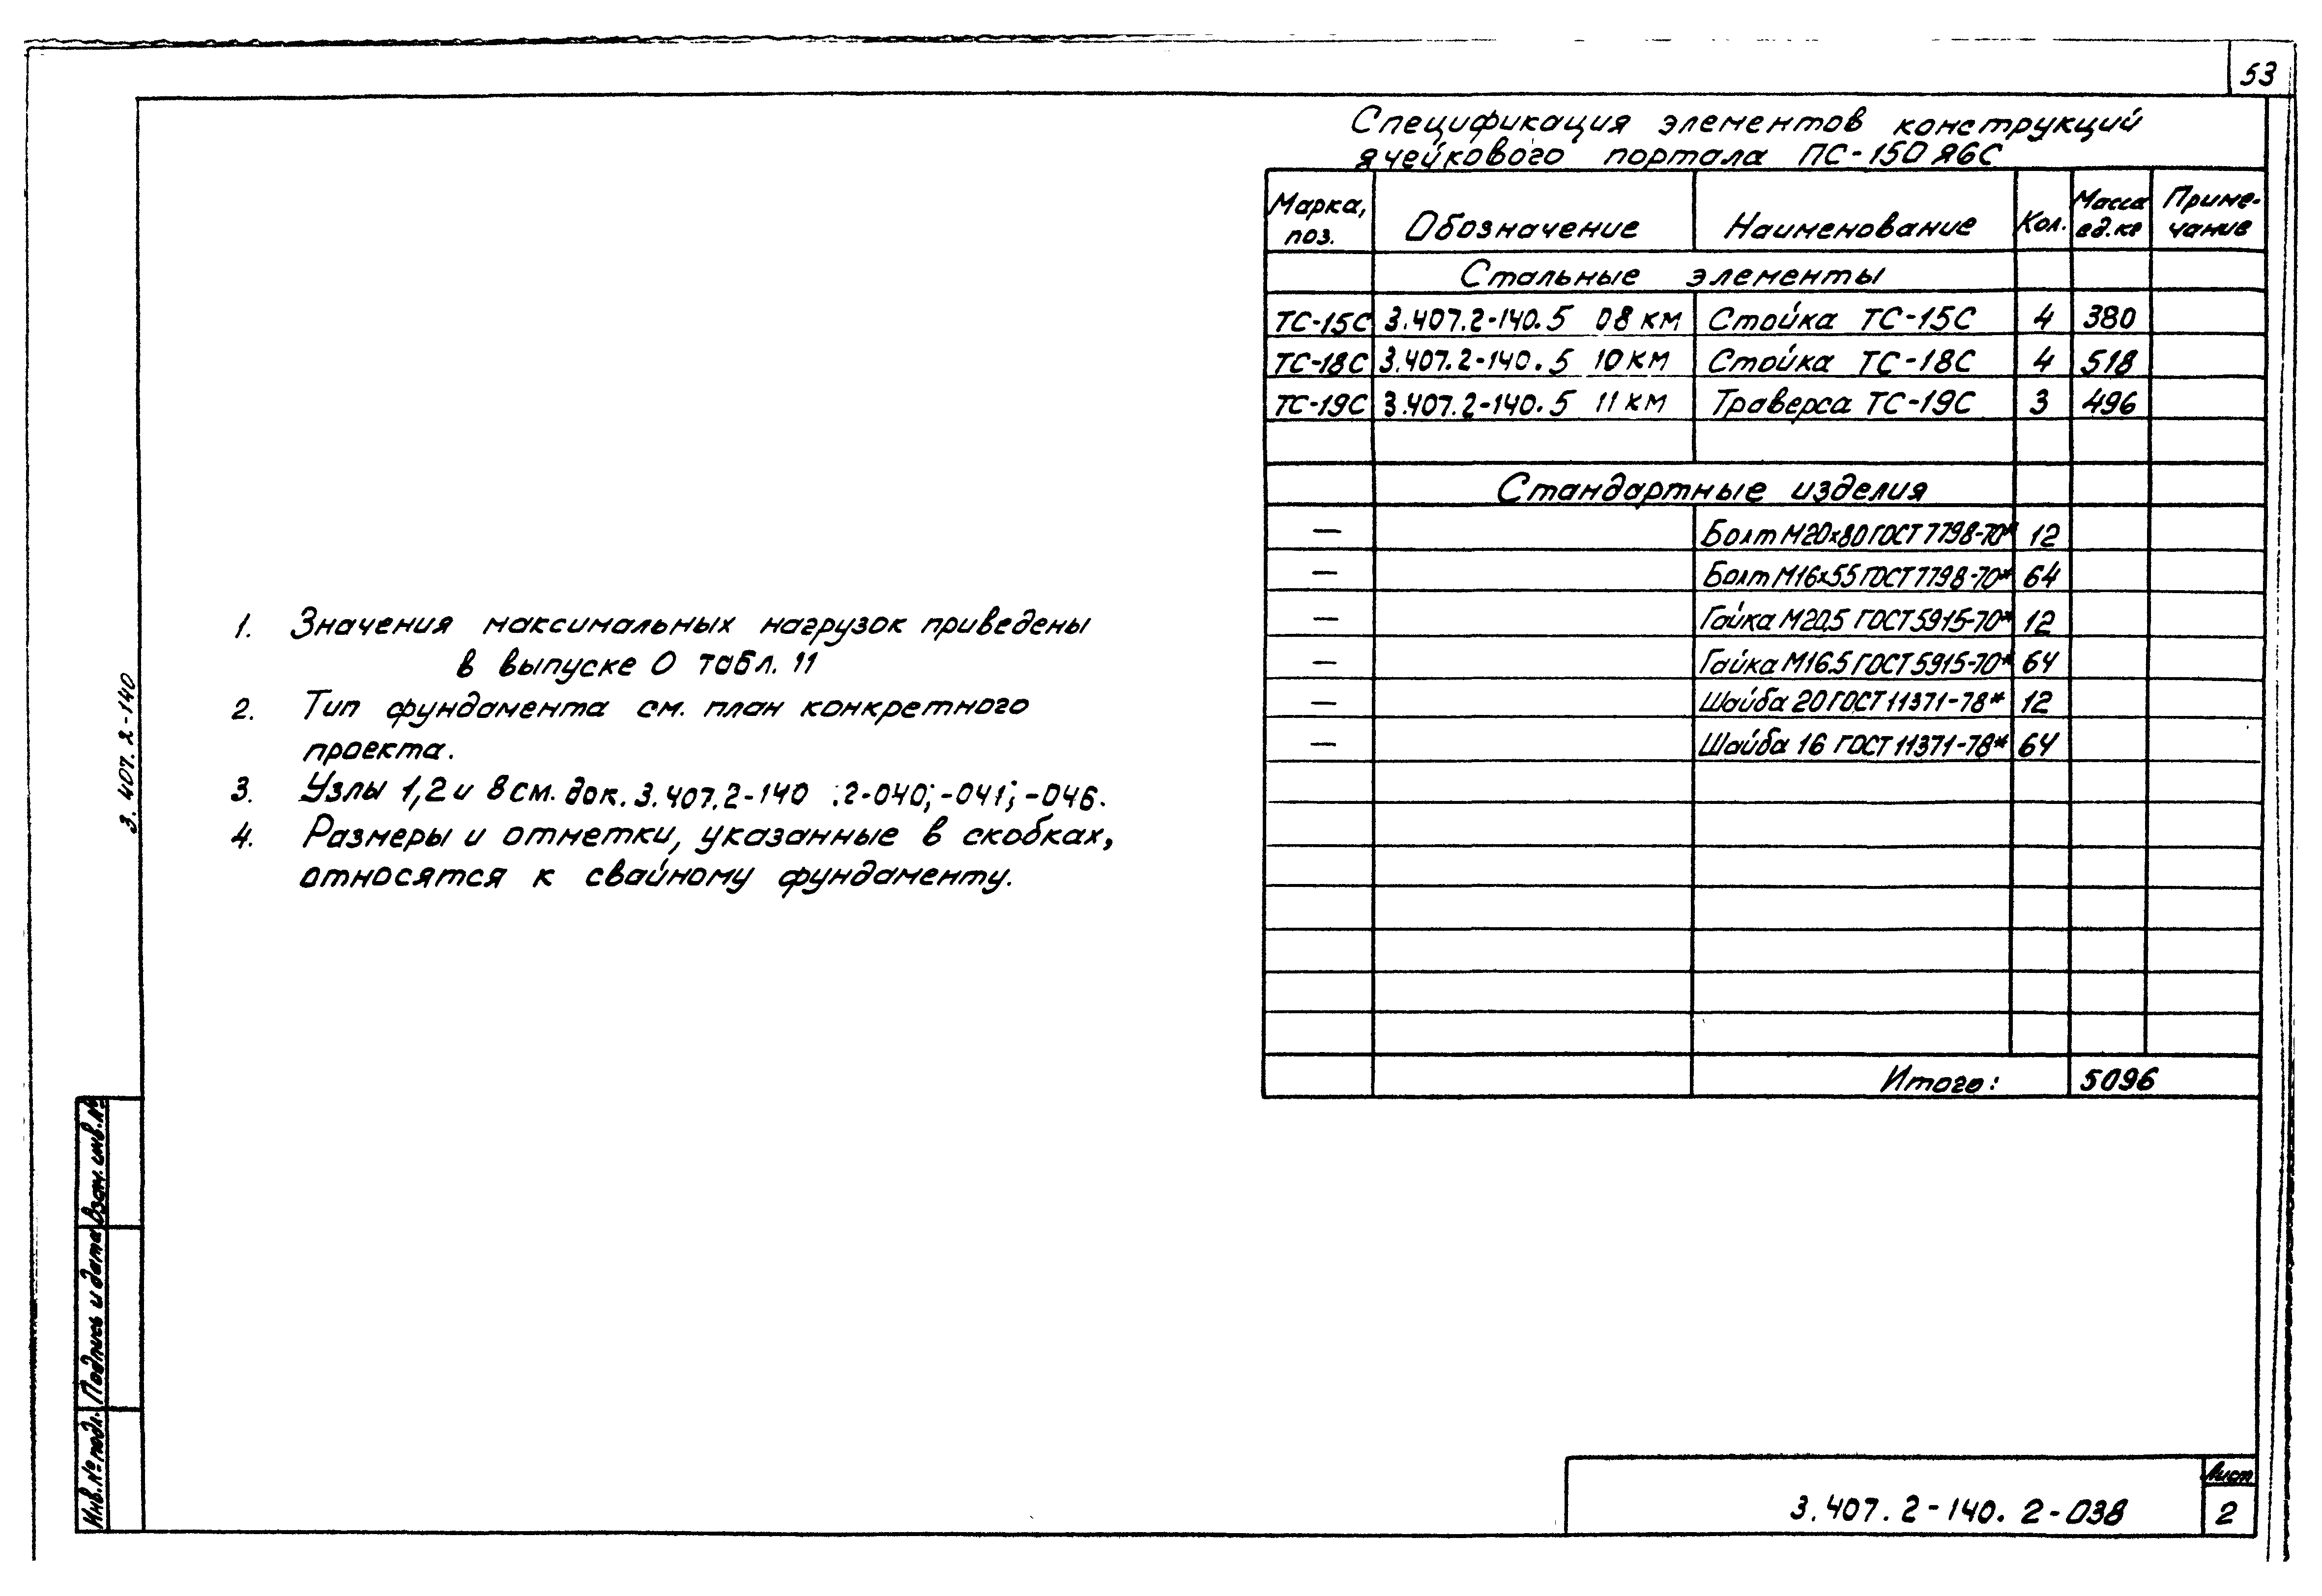 53
Спецификация элементов конструкций
ячейкового портала ПС-150Я6С
Марка, поз. Обозначение Наименование Кол. Масса ед.кг Приме-чание
Стальные элементы
ТС-15С 3.407.2-140.5 08 КМ Стойка ТС-15С 4 380
ТС-18С 3.407.2-140.5 10 КМ Стойка ТС-18С 4 518
ТС-19С 3.407.2-140.5 11 КМ Траверса ТС-19С 3 496
Стандартные изделия
— Болт М20х80 ГОСТ 7798-70* 12
— Болт М16х55 ГОСТ 7798-70* 64
— Гайка М20.5 ГОСТ 5915-70* 12
— Гайка М16.5 ГОСТ 5915-70* 64
— Шайба 20 ГОСТ 11371-78* 12
— Шайба 16 ГОСТ 11371-78* 64
Итого: 5096
1. Значения максимальных нагрузок приведены
в выпуске 0 табл. 11
2. Тип фундамента см. план конкретного
проекта.
3. Узлы 1,2 и 8 см. док. 3.407.2-140 .2-040; -041; -046.
4. Размеры и отметки, указанные в скобках,
относятся к свайному фундаменту.
3.407.2-140
Инв.№ подл. Подпись и дата Взам. инв.№
3.407.2-140.2-038
Лист
2